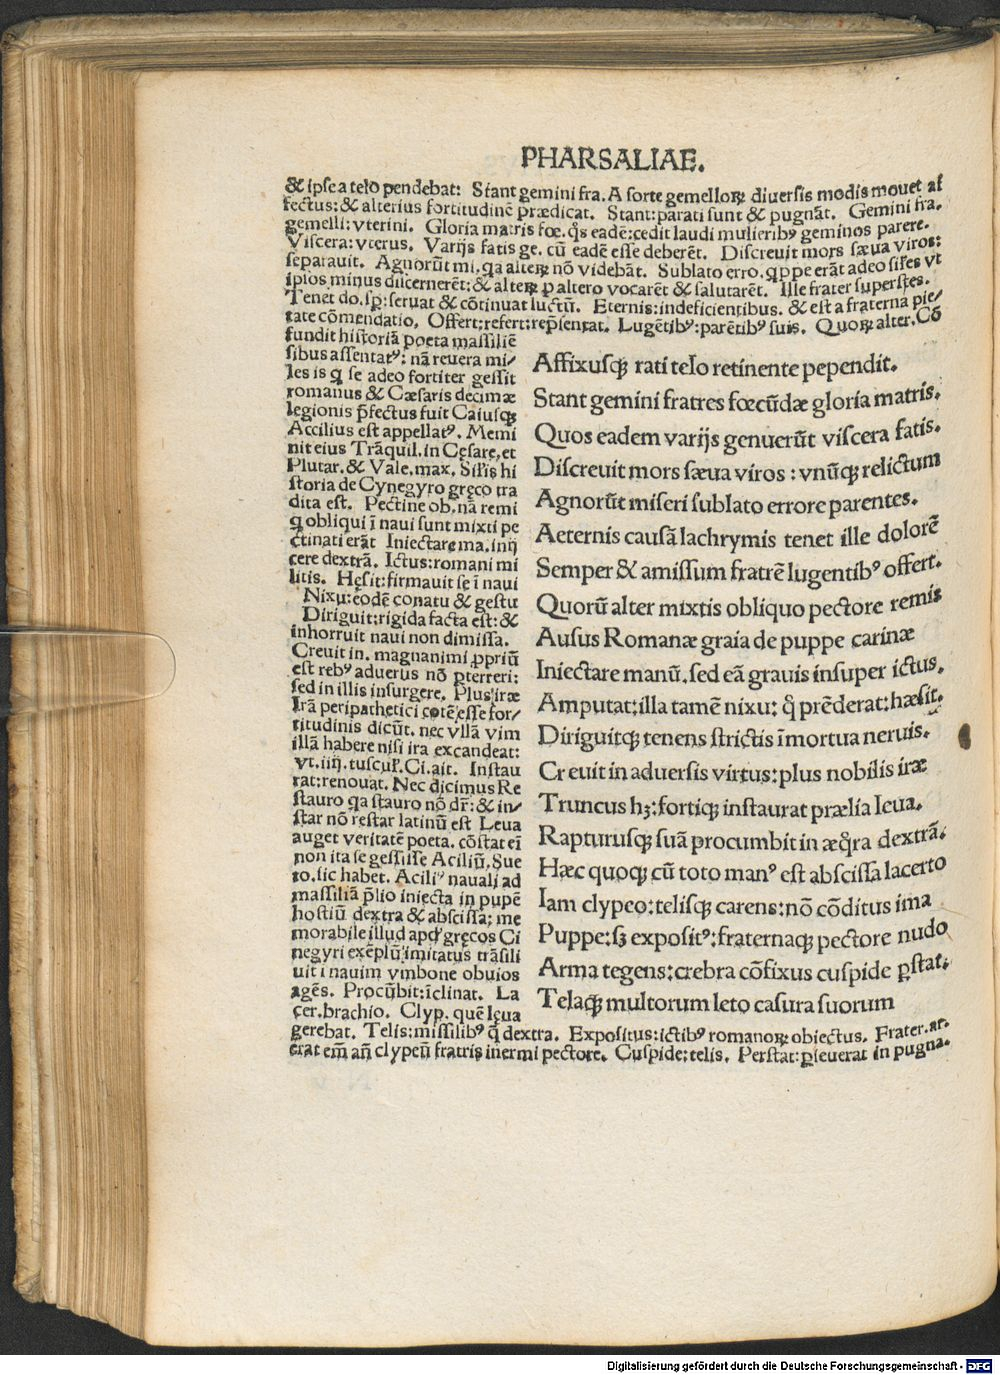 PHARSALIAE.
& ipse a telo pendebat: Stant gemini fra. A sorte gemelloꝝ diuersis modis mouet af
fectus: & alterius fortitudinē prædicat. Stant: parati sunt & pugnāt. Gemini fra.
gemelli: vterini. Gloria matris fœ. q̄s eadē: cedit laudi mulieribꝰ geminos parere.
Viscera: vterus. Varijs fatis ge. cū eadē esse deberēt. Discreuit mors sæua viros:
separauit. Agnorūt mi. qa alteꝝ nō videbāt. Sublato erro. qppe erāt adeo siles vt
ipsos minus discernerēt: & alteꝝ ꝓ altero vocarēt & salutarēt. Ille frater superstes.
Tenet do. sp̄: seruat & cōtinuat luctū. Eternis: indeficientibus. & est a fraterna pie⸗
tate cōmendatio. Offert: refert: rep̄sentat. Lugētibꝰ: parētibꝰ suis. Quoꝝ alter. Cō
fundit historiā poeta massiliē
sibus assentatꝰ: nā reuera mi⸗
les is q se adeo fortiter gessit
romanus & Cæsaris decimæ
legionis p̄fectus fuit Caiusqꝫ
Accilius est appellatꝰ. Memi
nit eius Trāquil. in Cęsare, et
Plutar. & Vale. max. Silis hi
storia de Cynegyro gręco tra
dita est. Pectine ob. nā remi
q obliqui ī naui sunt mixti pe
ctinati erāt Iniectare ma. inij
cere dextrā. Ictus: romani mi
litis. Hęsit: firmauit se ī naui
Nixu: eodē conatu & gestu
Diriguit: rigida facta est: &
inhorruit naui non dimissa.
Creuit in. magnanimi ꝓpriū
est rebꝰ aduersus nō ꝑterreri:
sed in illis insurgere. Plus iræ
Irā peripathetici cotē esse for⸗
titudinis dicūt. nec vllā vim
illā habere nisi ira excandeat:
vt. iiij. tuscul. Ci. ait. Instau
rat: renouat. Nec dicimus Re
stauro qa stauro nō dr̄: & in⸗
star nō restar latinū est Leua
auget veritatē poeta. cōstat eī
non ita se gessisse Aciliū. Sue
to. sic habet. Aciliꝰ nauali ad
massiliā p̄lio iniecta in pupē
hostiū dextra & abscissa: me
morabile illud apd' gręcos Ci
negyri exēplū imitatus trāsili
uit i nauim vmbone obuios
agēs. Procūbit: īclinat. La
cer. brachio. Clyp. quē lęua
gerebat. Telis: missilibꝰ q̄ dextra. Expositus: ictibꝰ romanoꝝ obiectus. Frater. ar.
erat em̄ an̄ clypeū fratris inermi pectore. Cuspide: telis. Perstat: ꝑseuerat in pugna.
Affixusqꝫ rati telo retinente pependit.
Stant gemini fratres fœcūdæ gloria matris.
Quos eadem varijs genuerūt viscera fatis.
Discreuit mors sæua viros: vnūqꝫ relictum
Agnorūt miseri sublato errore parentes.
Aeternis causā lachrymis tenet ille dolorē
Semper & amissum fratrē lugentibꝰ offert.
Quorū alter mixtis obliquo pectore remis
Ausus Romanæ graia de puppe carinæ
Iniectare manū. sed eā grauis insuper ictus.
Amputat: illa tamē nixu: q̊ prēderat: hæsit.
Diriguitqꝫ tenens strictis īmortua neruis.
Creuit in aduersis virtus: plus nobilis iræ
Truncus hꝫ: fortiqꝫ instaurat prælia leua.
Rapturusqꝫ suā procumbit in æq̊ra dextrā.
Hæc quoqꝫ cū toto manꝰ est abscissa lacerto
Iam clypeo: telisqꝫ carens: nō cōditus ima
Puppe: sꝫ expositꝰ: fraternaqꝫ pectore nudo
Arma tegens: crebra cōfixus cuspide ꝑstat.
Telaqꝫ multorum leto casura suorum
Digitalisierung gefördert durch die Deutsche Forschungsgemeinschaft - DFG